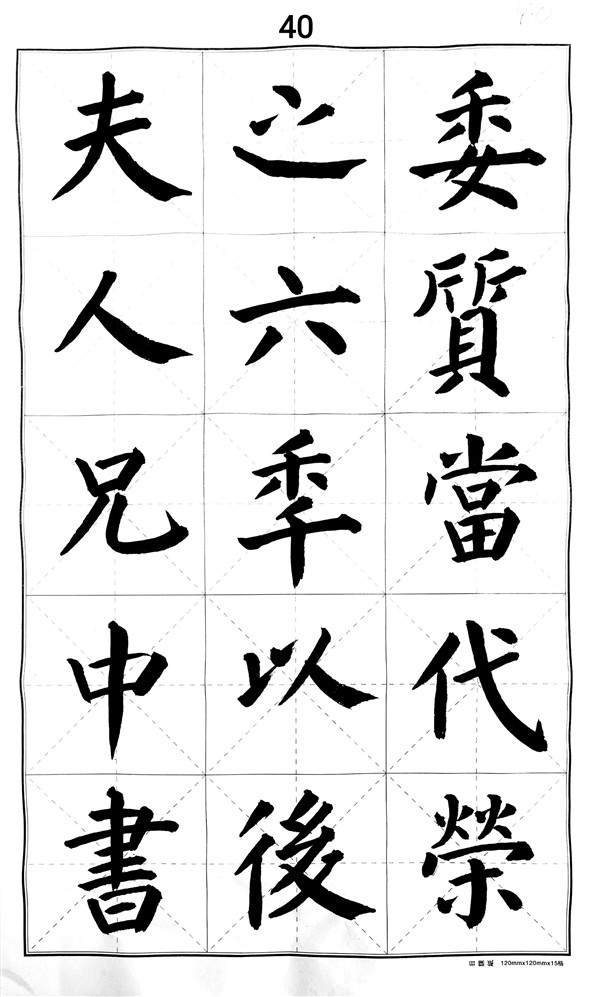 40
委質當代榮
之六秊以後
夫人兄中書
120mmx120mmx15格